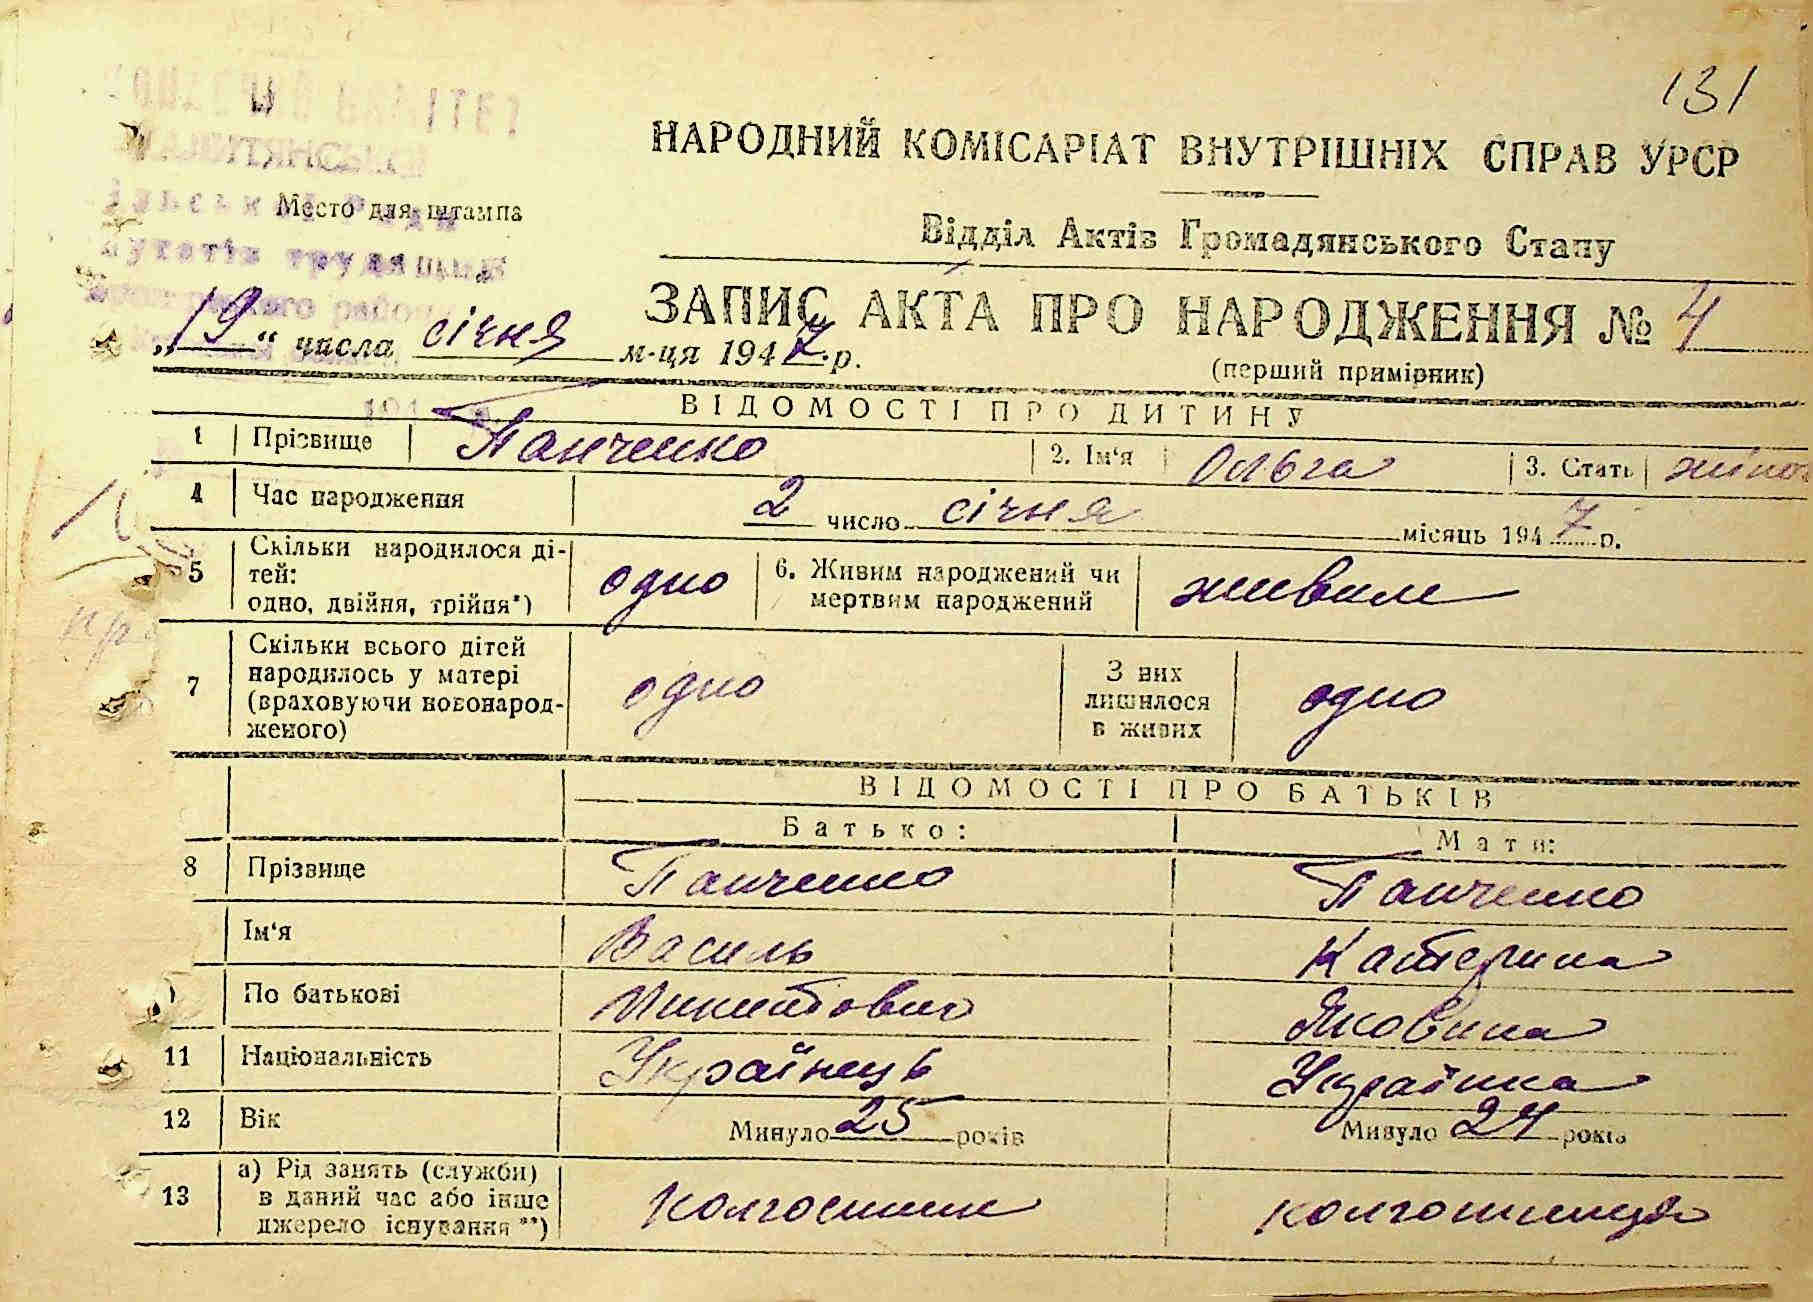 131
КОМІТЕТ
НАРОДНИЙ КОМІСАРІАТ ВНУТРІШНІХ СПРАВ УРСР
Место для штампа
Відділ Актів Громадянського Стану
трудящих
району
ЗАПИС АКТА ПРО НАРОДЖЕННЯ № 4
„19“ числа січня м-ця 1947 р.
(перший примірник)
ВІДОМОСТІ ПРО ДИТИНУ
1 Прізвище Панченко 2. Ім‘я Ольга 3. Стать жіноч
4 Час народження 2 число січня місяць 1947 р.
5 Скільки народилося ді-
тей:
одно, двійня, трійня*) одно 6. Живим народжений чи
мертвим народжений живим
7 Скільки всього дітей
народилось у матері
(враховуючи новонарод-
женого) одно З них
лишилося
в живих одно
ВІДОМОСТІ ПРО БАТЬКІВ
Батько: Мати:
8 Прізвище Панченко Панченко
Ім‘я Василь Катерина
По батькові Микитович Яковина
11 Національність Українець Українка
12 Вік Минуло 25 років Минуло 24 років
13 а) Рід занять (служби)
в даний час або інше
джерело існування**) колгоспник колгоспниця